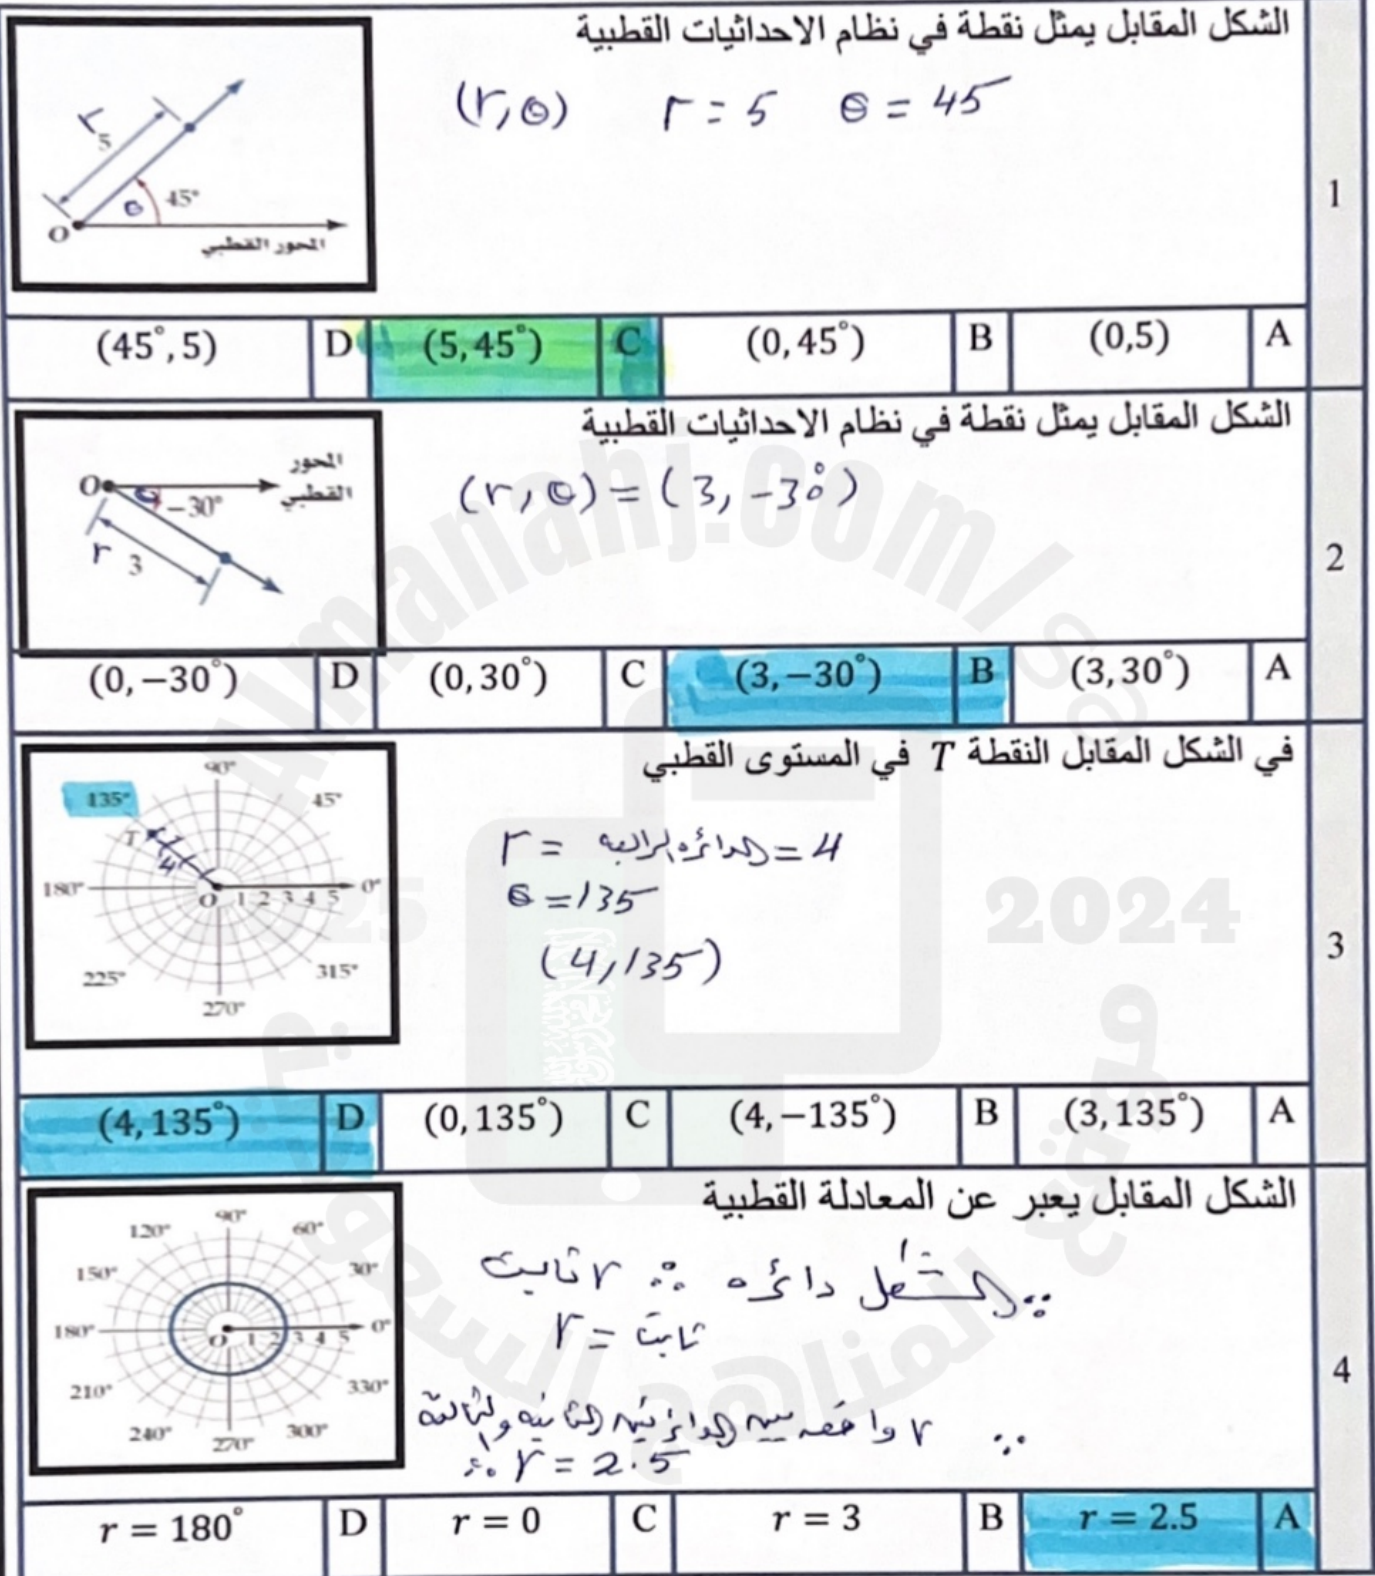 الشكل المقابل يمثل نقطة في نظام الاحداثيات القطبية
(r, θ) r = 5 θ = 45
1
r
5
θ 45°
O
المحور القطبي
A (0,5) B (0,45°) C (5,45°) D (45°,5)
الشكل المقابل يمثل نقطة في نظام الاحداثيات القطبية
(r, θ) = (3, -30°)
2
المحور
القطبي
O θ -30°
r 3
A (3,30°) B (3,−30°) C (0,30°) D (0,−30°)
في الشكل المقابل النقطة T في المستوى القطبي
r = الدائرة الرابعة = 4
θ = 135
(4, 135)
3
90°
135° 45°
T
4
180° O 1 2 3 4 5 0°
225° 315°
270°
A (3,135°) B (4,−135°) C (0,135°) D (4,135°)
الشكل المقابل يعبر عن المعادلة القطبية
∵ الشكل دائره ∴ r ثابت
r = ثابت
∵ r واقعه بين الدائرتين الثانيه والثالثة
∴ r = 2.5
4
90°
120° 60°
150° 30°
180° O 1 2 3 4 5 0°
210° 330°
240° 300°
270°
A r = 2.5 B r = 3 C r = 0 D r = 180°
almanahj.com/sa
2024
25
موقع المناهج السعودية